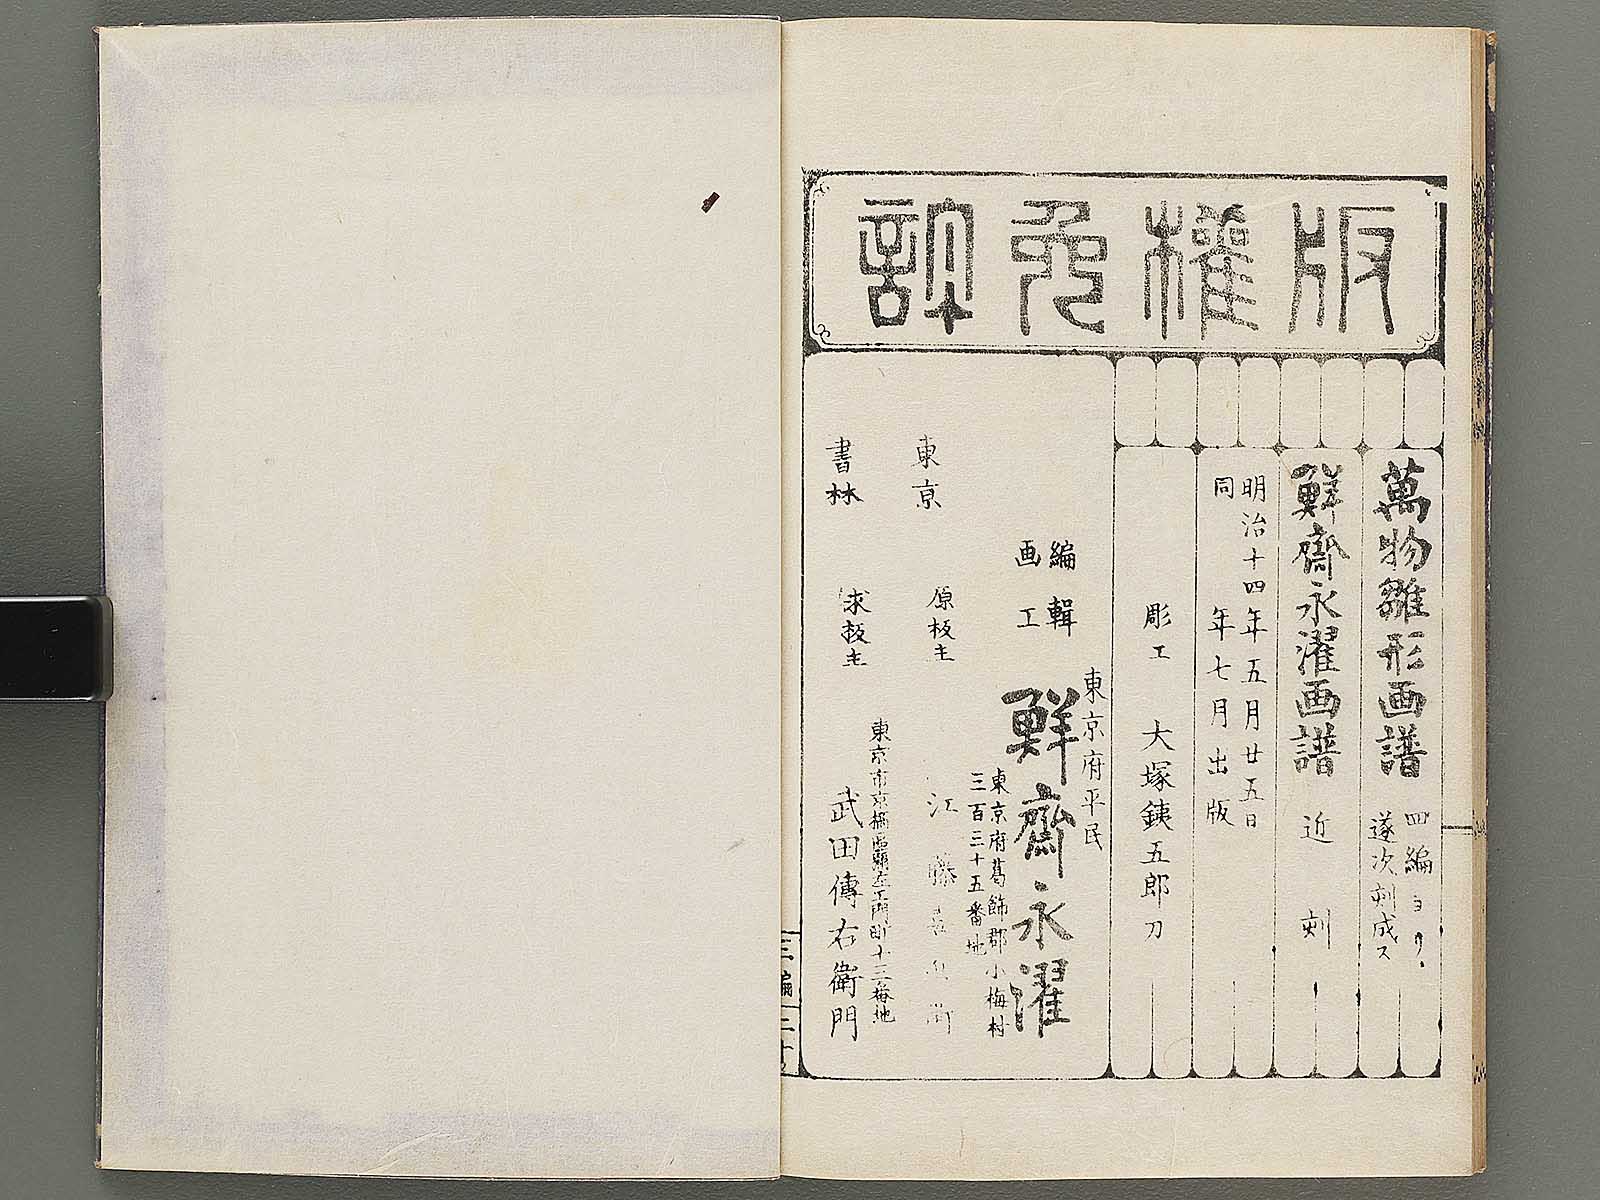 版權免許
萬物雛形画譜
四編ヨリ
遂次刻成ス
鮮齋永濯画譜 近刻
明治十四年五月廿五日
同 年七月出版
彫工 大塚銕五郎刀
東京府平民
編輯
画工
鮮齋永濯
東京府葛飾郡小梅村
三百三十五番地
東京
原板主
江藤喜兵衛
書林
求板主
東京市京橋區
町十三番地
武田傳右衛門
三編
二十